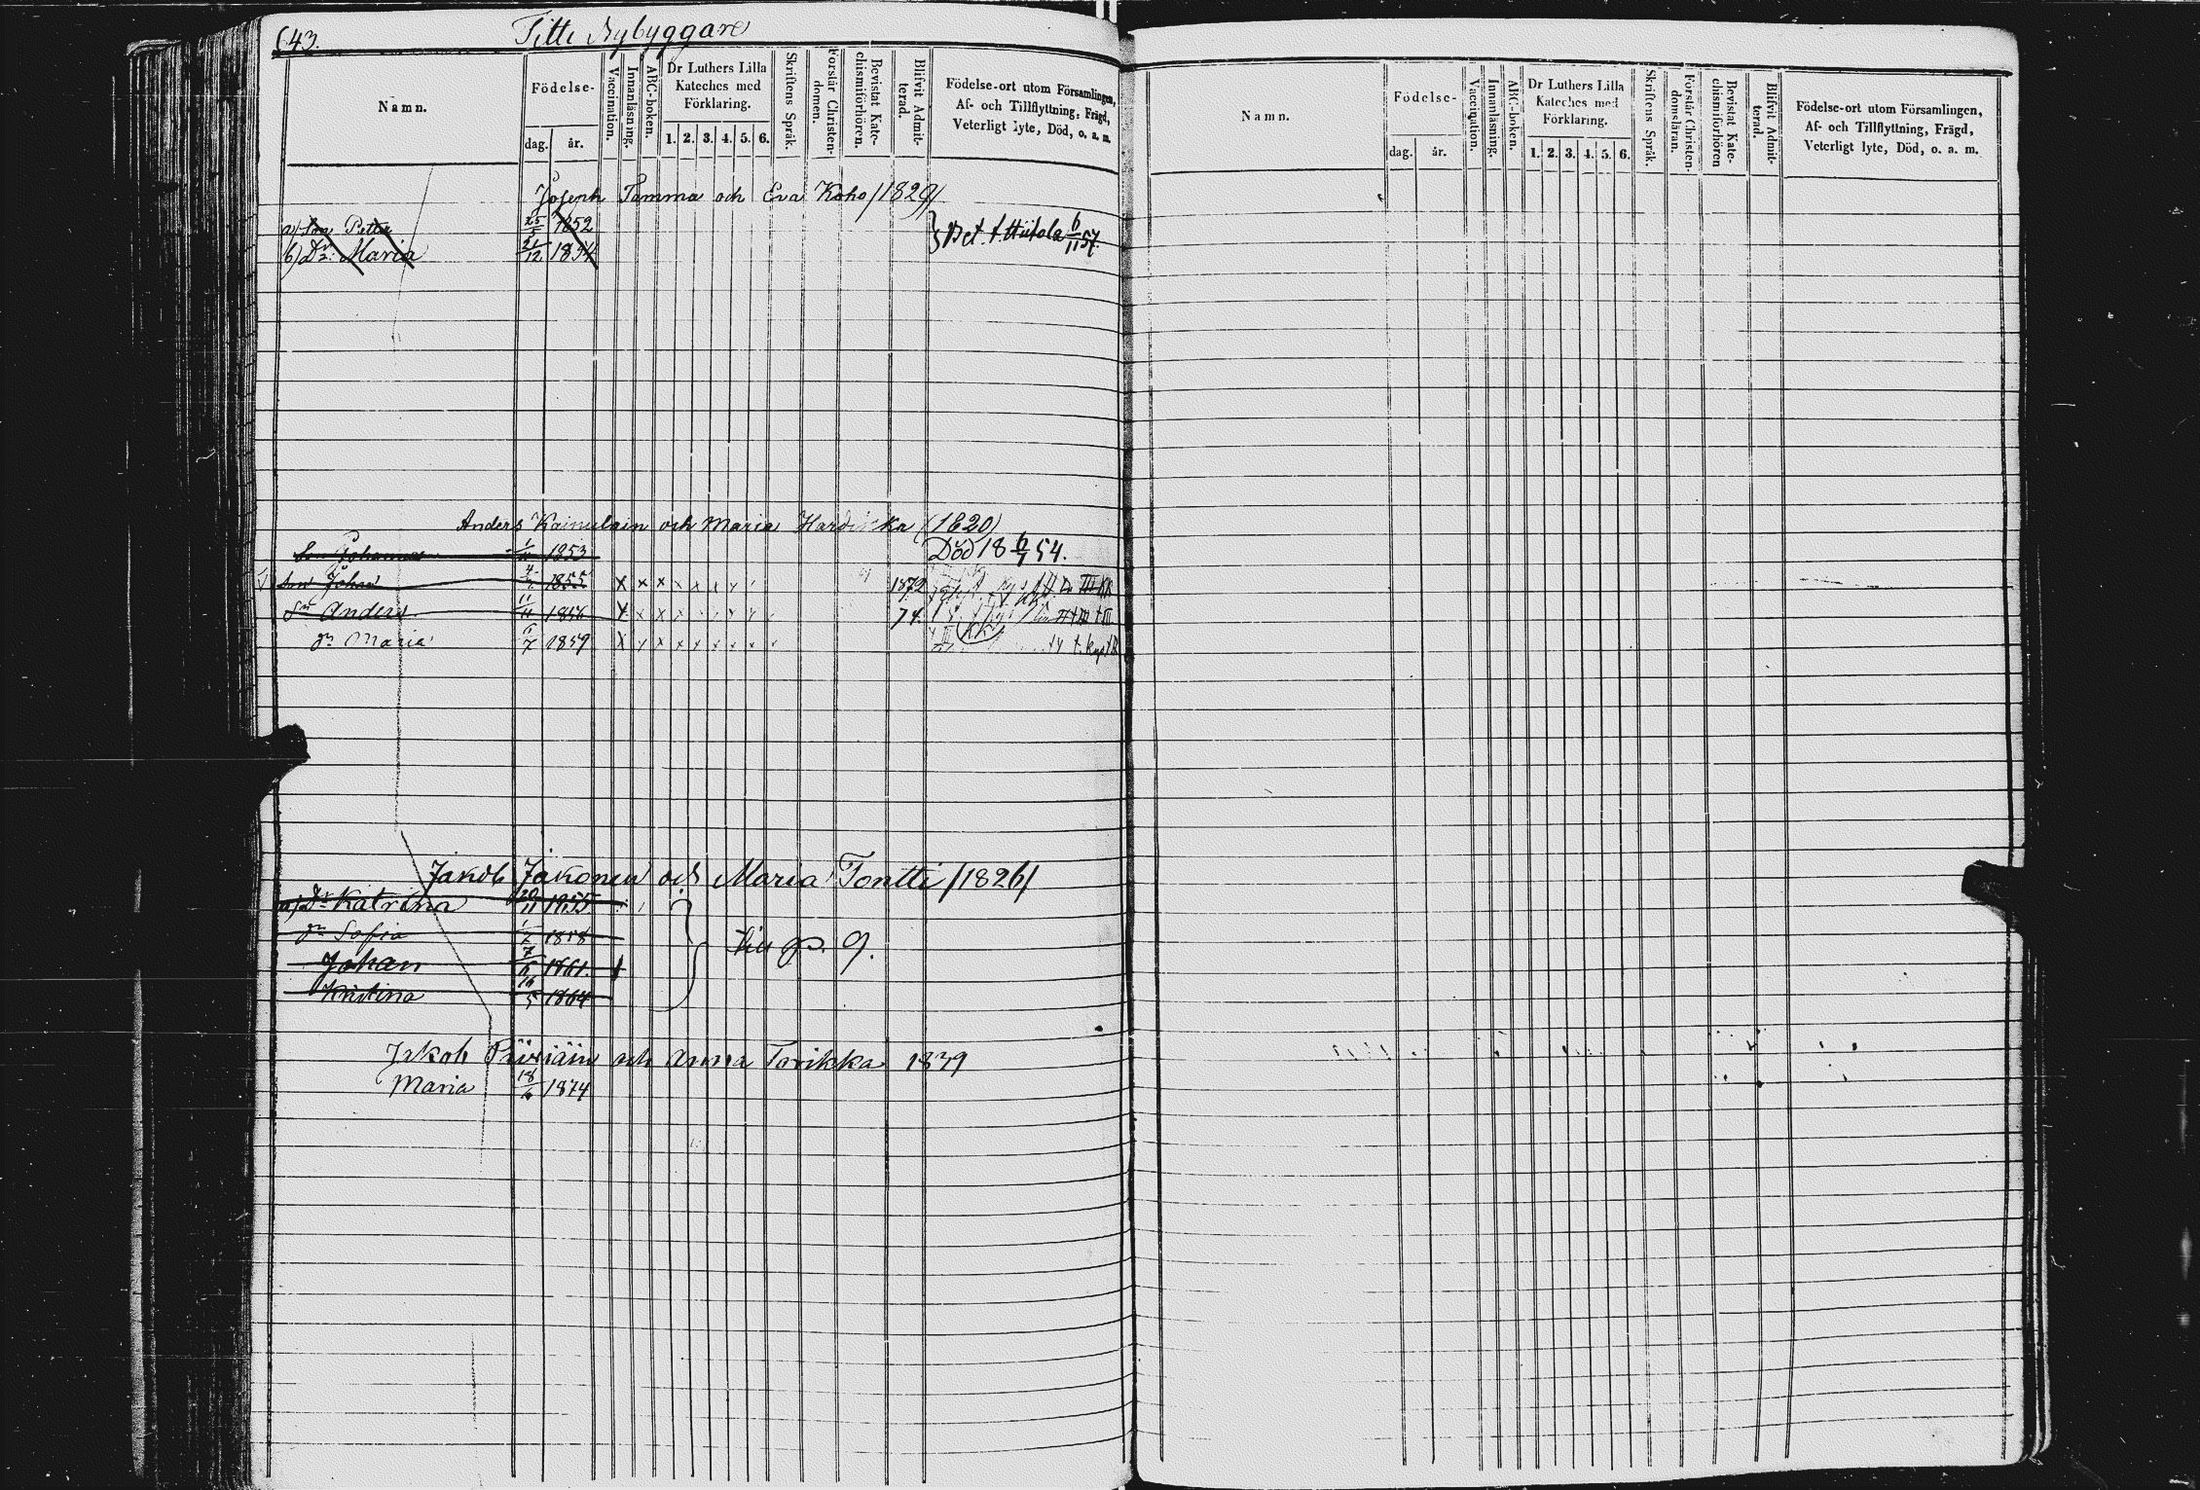 643.
Titti Nybyggare
Namn.
Födelse-
dag. år.
Vaccination.
Innanläsning.
ABC-boken.
Dr Luthers Lilla
Kateches med
Förklaring.
1. 2. 3. 4. 5. 6.
Skriftens Språk.
Förstår Christen-
domen.
Bevistat Kate-
chismiförhören.
Blifvit Admit-
terad.
Födelse-ort utom Församlingen,
Af- och Tillflyttning, Frägd,
Veterligt lyte, Död, o. a. m.
Joseph Tamma och Eva Koho /1829/
a) Son Petter 25/5 1852
b) Dr: Maria 21/12 1854
Bet. t. Hiitola 6/11 57.
Anders Kainulain och Maria (1820)
Son Johannes 1853 Död 18 6/7 54.
Son Johan 4 1855 x x x x x x x 1872
Sn Anders 11/11 1856 x x x x 74.
Dr Maria 7 1859 x x x x x x x x x
Jakob Jakonen och Maria Tontti /1826/
a) Dr Katrina 20/11 1855
Dr Sofia 1/2 1858
Johan 7 1861
Kristina 16/5 1864
p. 9.
Jakob och Anna Torikka 1839
Maria 18/6 1874
Namn.
Födelse-
dag. år.
Vaccination.
Innanläsning.
ABC-boken.
Dr Luthers Lilla
Kateches med
Förklaring.
1. 2. 3. 4. 5. 6.
Skriftens Språk.
Förstår Christen-
domsläran.
Bevistat Kate-
chismiförhören
Blifvit Admit-
terad.
Födelse-ort utom Församlingen,
Af- och Tillflyttning, Frägd,
Veterligt lyte, Död, o. a. m.